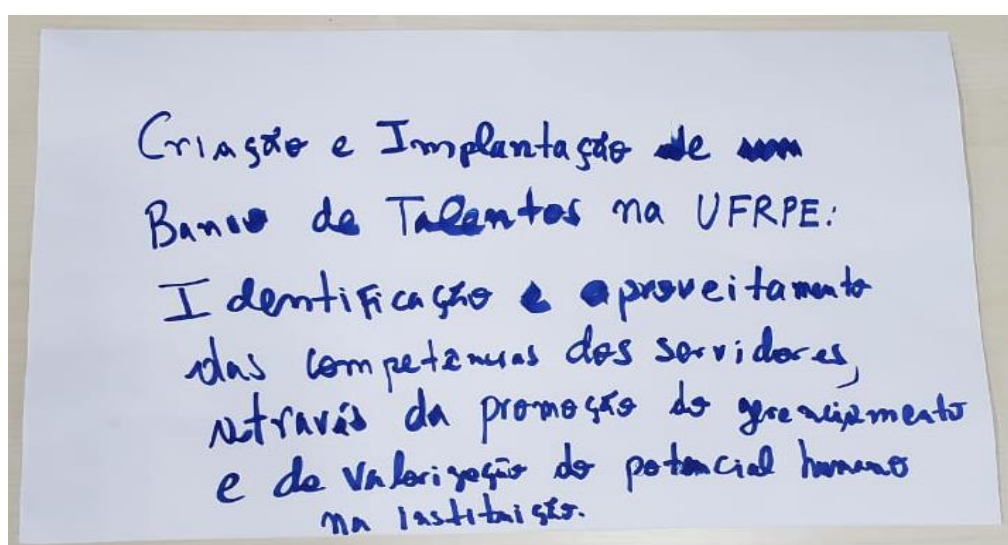 Criação e Implantação de um
Banco de Talentos na UFRPE:
Identificação e aproveitamento
das competências dos servidores,
através da promoção do gerenciamento
e da valorização do potencial humano
na instituição.